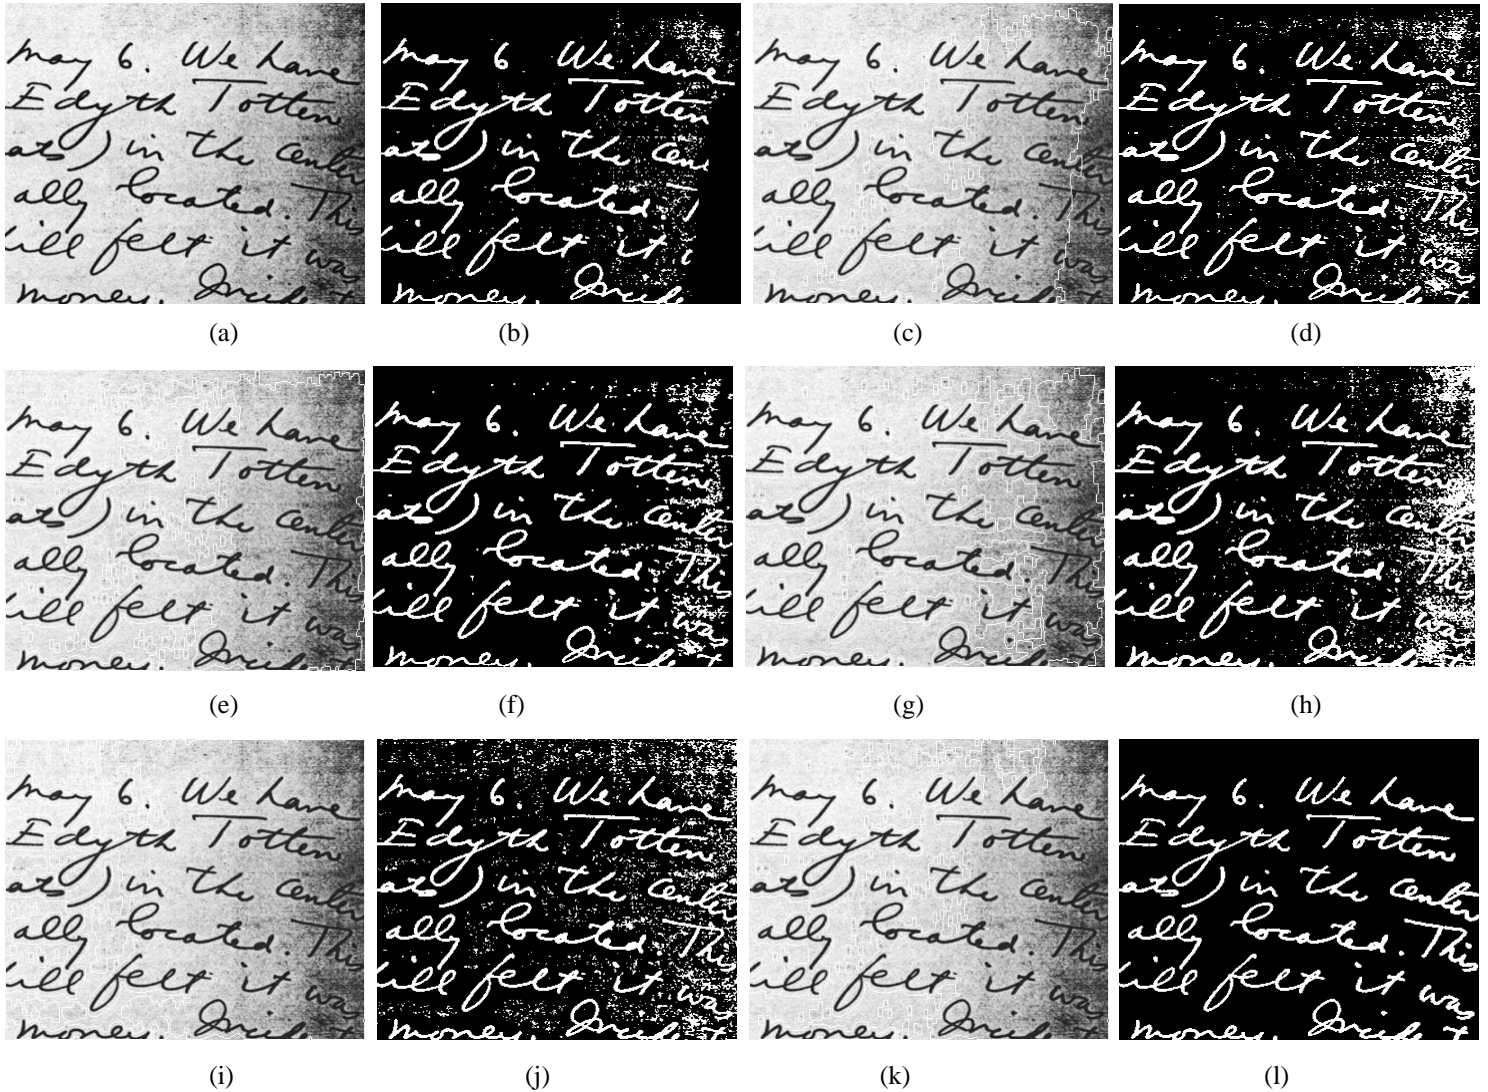 may 6. We have
Edyth Totten
ats) in the center
ally located. This
ill felt it was
money.
(a)
may 6. We have
Edyth Totten
ats) in the cen
ally located. T
ill felt it
money.
(b)
may 6. We have
Edyth Totten
ats) in the center
ally located. This
ill felt it was
money.
(c)
may 6. We have
Edyth Totten
ats) in the center
ally located. This
ill felt it was
money.
(d)
may 6. We have
Edyth Totten
ats) in the center
ally located. This
ill felt it was
money.
(e)
may 6. We have
Edyth Totten
ats) in the center
ally located. This
ill felt it was
money.
(f)
may 6. We have
Edyth Totten
ats) in the center
ally located. This
ill felt it was
money.
(g)
may 6. We have
Edyth Totten
ats) in the center
ally located. This
ill felt it was
money.
(h)
may 6. We have
Edyth Totten
ats) in the center
ally located. This
ill felt it was
money.
(i)
may 6. We have
Edyth Totten
ats) in the center
ally located. This
ill felt it was
money.
(j)
may 6. We have
Edyth Totten
ats) in the center
ally located. This
ill felt it was
money.
(k)
may 6. We have
Edyth Totten
ats) in the center
ally located. This
ill felt it was
money.
(l)